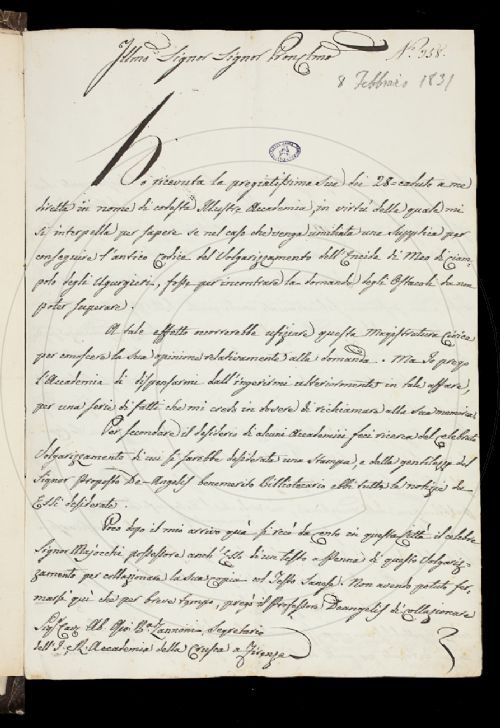 Illmo. Signor Signor Pron. Colmo
N.° 358.
8 Febbraio 1831
Ho ricevuta la pregiatissima sua dei 28 = caduto a me
diretta in nome di codesta Illustre Accademia, in virtù della quale mi
si interpella per sapere se nel caso che venga umiliata una supplica per
conseguire l'antico Codice del Volgarizzamento dell'Eneide di Meo di Ciam-
polo degli Ugurgieri, fosse per incontrare la domanda degli Ostacoli da non
poter superare.
A tale effetto occorrerebbe ufiziare questa Magistratura Civica
per conoscere la sua opinione relativamente alla domanda. Ma Io prego
l'Accademia di dispensarmi dall'ingerirmi ulteriormente in tale affare,
per una serie di fatti che mi credo in dovere di richiamare alla sua memoria.
Per secondare il desiderio di alcuni Accademici feci ricerca del celebrato
Volgarizzamento di cui si sarebbe desiderata una stampa, e dalla gentilezza del
Signor Proposto De-Angelis benemerito Bibliotecario ebbi tutte le notizie da
Essi desiderate.
Poco dopo il mio arrivo quà si recò da conto in questa Città il celebre
Signor Majocchi possessore anch'Esso di un testo a penna di questo Volgariz-
zamento per collazionare la sua copia col Testo Sanese. Non avendo potuto fer-
marsi quì che per breve tempo, pregò il Professore Deangelis di collazionare
Sigr. Cav. Ab. Gio. Ba. Zannonia Segretario
dell'I. e R. Accademia della Crusca a Firenze